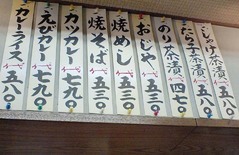 しゃけ茶漬 五八〇
たら子茶漬 五八〇
のり茶漬 四七〇
おじや 五三〇
焼めし 五三〇
焼そば 五三〇
カツカレー 七九〇
えびカレー 七九〇
カレーライス 五八〇